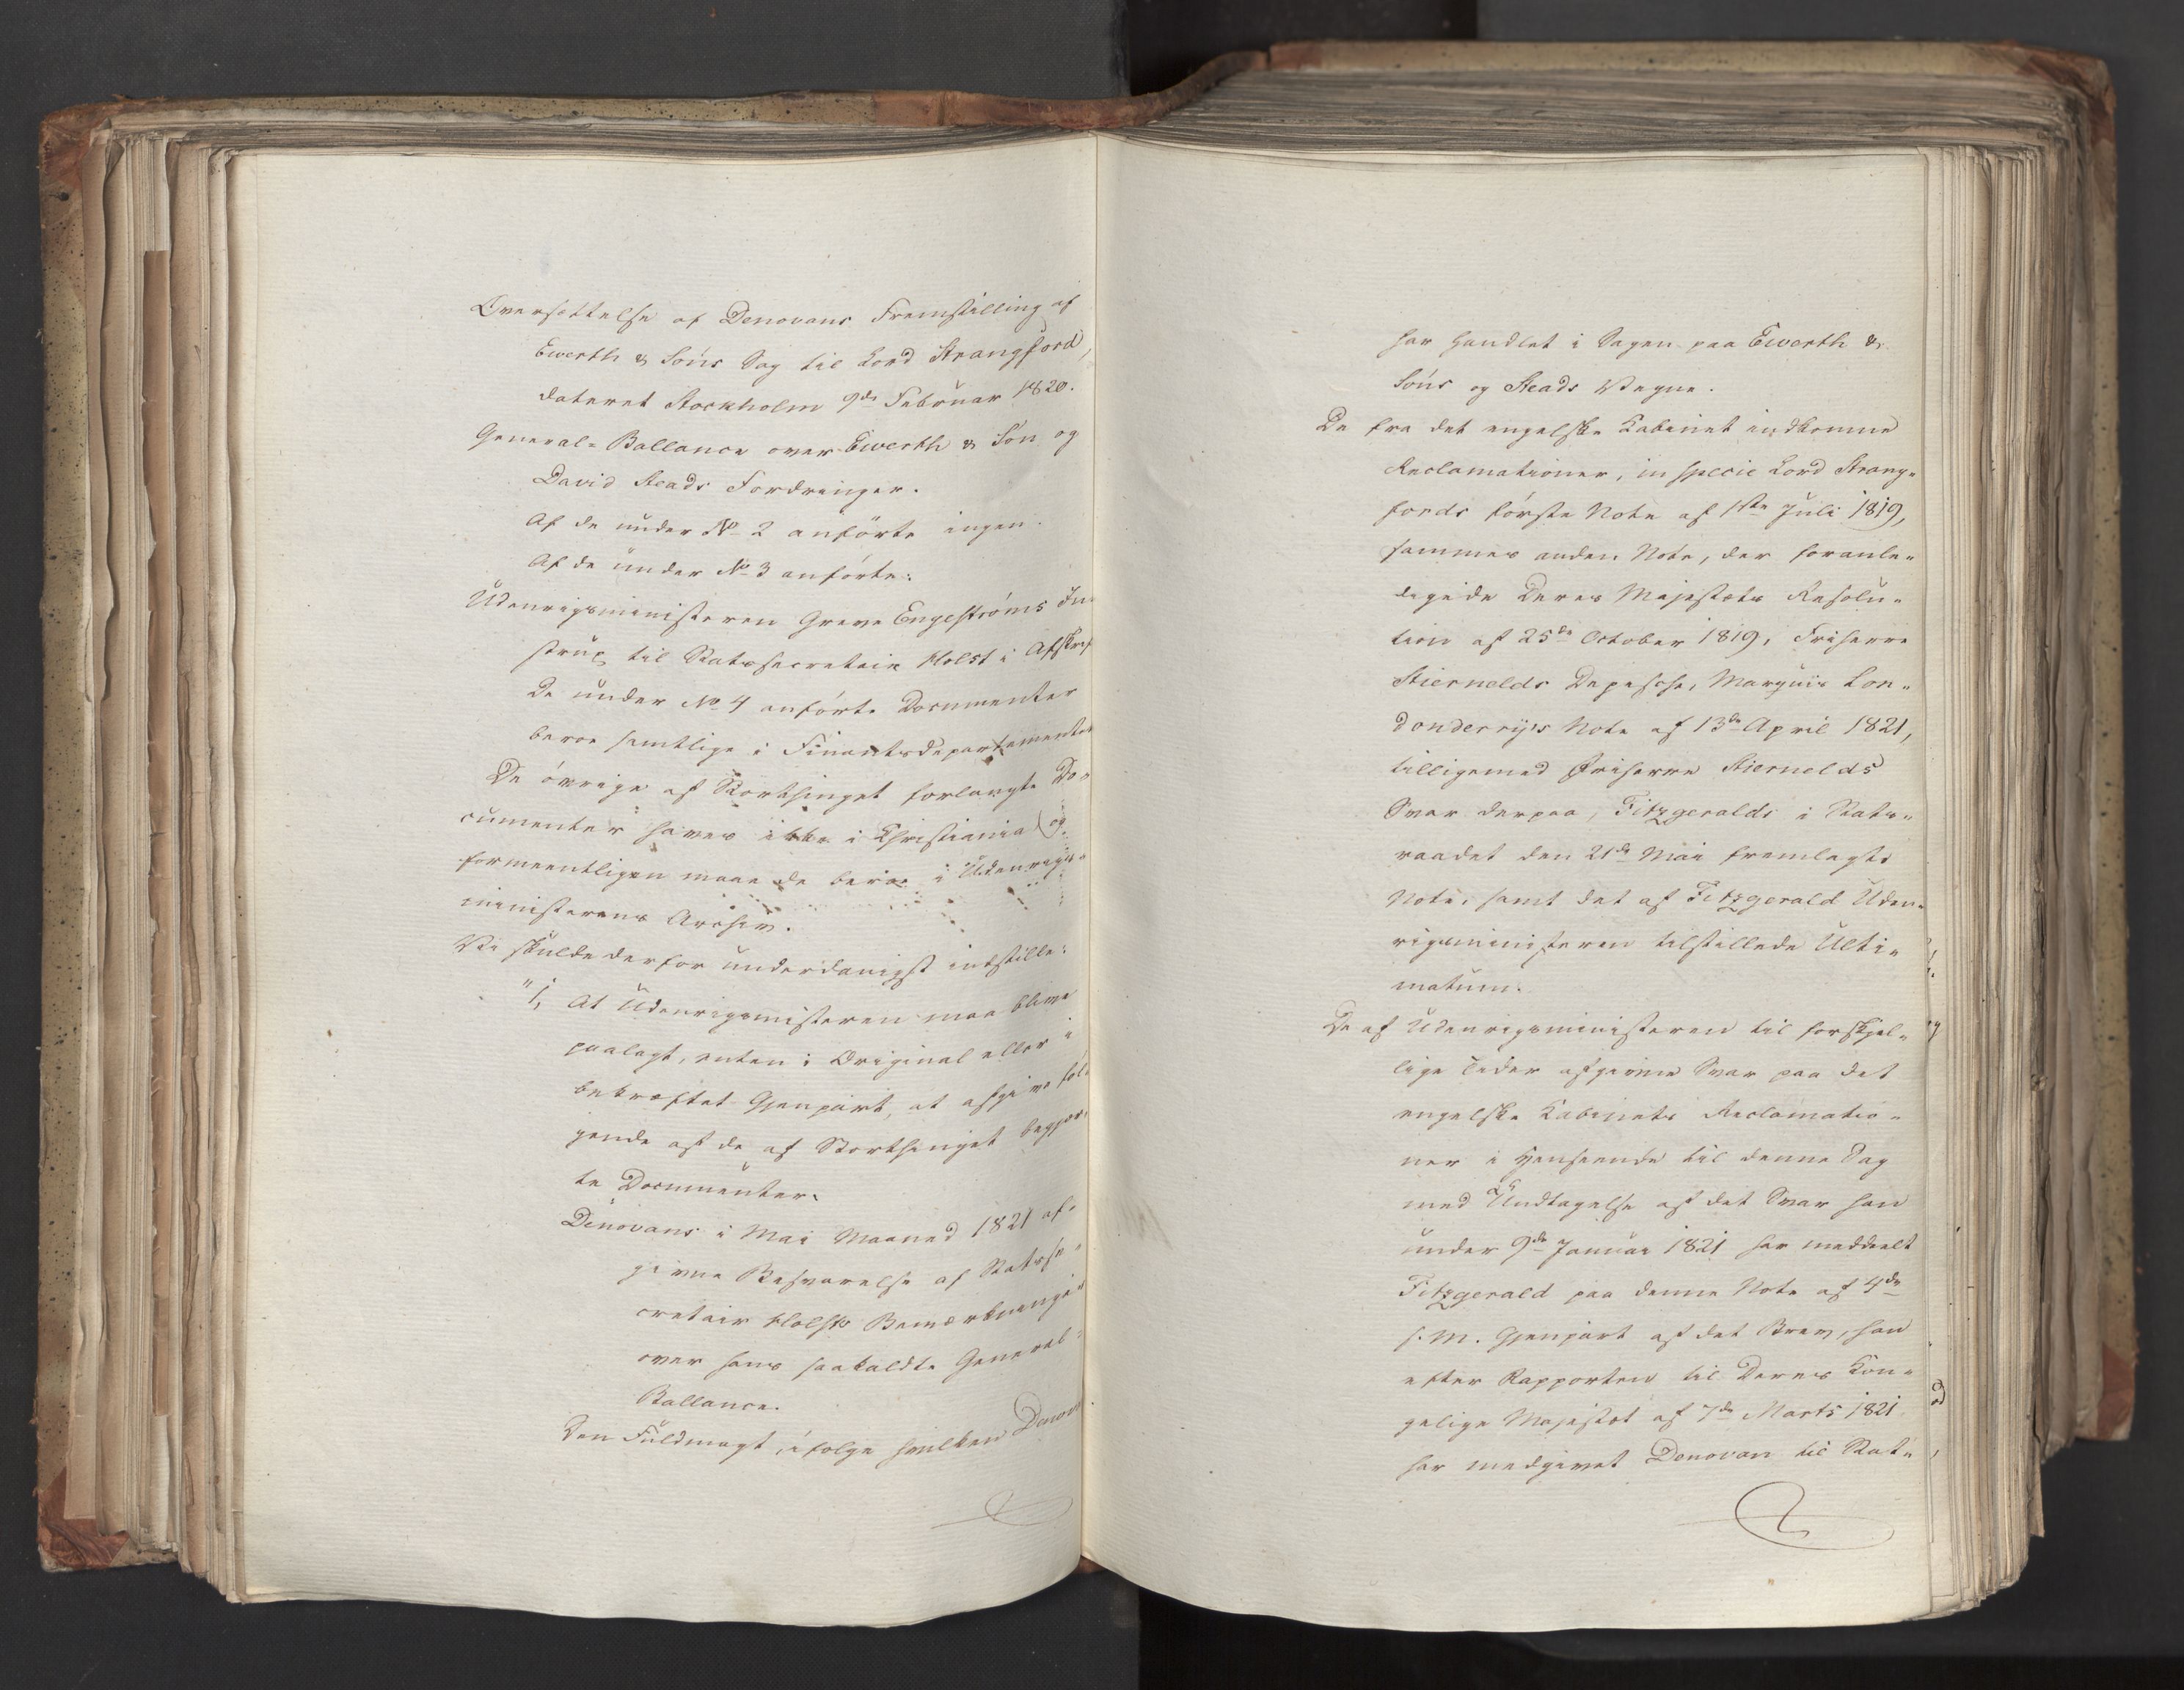 Oversættelse af Denovans Fremstilling af
Ewerth & Söns Sag til Lord Strangford,
dateret Stockholm 9de Februar 1820.
General-Ballance over Ewerth & Sön og
David Reads Fordringer.
Af de under No 2 anförte ingen.
Af de under No 3 anförte:
Udenrigsministeren Greve Engeströms In-
strux til Statssecretair Holst i Afskrift
De under No 4 anförte Documenter
beroe samtlige i Finantsdepartementet
De övrige af Storthinget forlangte Do-
cumenter haves ikke i Christiania og
formeentligen maae de beroe i Udenrigs-
ministerens Archiv.
Vi skulde derfor underdanigst indstille:
"1, At Udenrigsmisteren maa blive
paalagt, enten i Original eller i
bekræftet Gjenpart, at afgive föl-
gende af de af Storthinget begjær-
te Documenter:
Denovans i Mai Maaned 1821 af-
givne Besvarelse af Statsse-
cretair Holsts Bemærkninger
over hans saakaldte General-
Ballance.
Den Fuldmagt, ifölge hvilken Denovan
har handlet i Sagen paa Ewerth &
Söns og Reads Vegne.
De fra det engelske Kabinet indkomne
Reclamationer, in specie Lord Strang-
fords förste Note af 1ste Juli 1819,
sammes anden Note, der foranle-
digede Deres Majestæts Resolu-
tion af 25de October 1819, Friherre
Stiernelds Depesche, Marquis Lon-
donderrys Note af 13de April 1821,
tilligemed Friherre Stiernelds
Svar derpaa, Fitzgeralds i Stats-
raadet den 21de Mai fremlagte
Note, samt det af Fitzgerald Uden-
rigsministeren tilstillede Ulti-
matum.
De af Udenrigsministeren til forskjel-
lige Tider afgivne Svar paa det
engelske Kabinets Reclamatio-
ner i Henseende til denne Sag
med Undtagelse af det Svar han
under 9de Januar 1821 har meddeelt
Fitzgerald paa denne Note af 4de
s. M. Gjenpart af det Brev, han
efter Rapporten til Deres Kon-
gelige Majestæt af 7de Marts 1821
har medgivet Denovan til Stat-